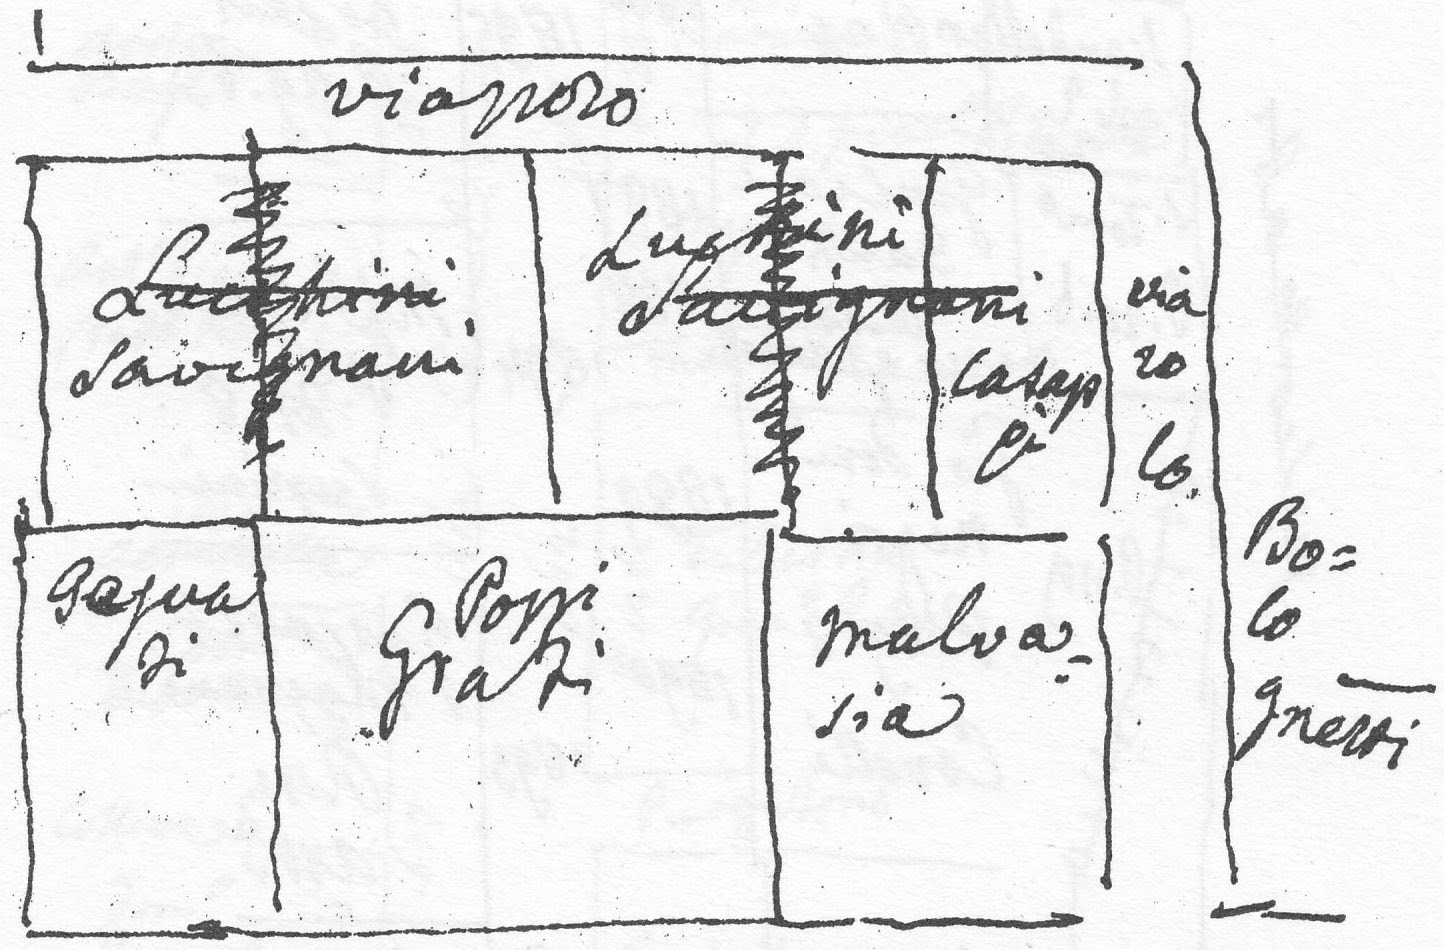 viazzolo
Lucchini
Savignani
Lucchini
Savignani
Casap
pi
via
zo
lo.
Bo=
lo
gnetti
Segua
zi
Pozzi
Grazi
malva=
sia